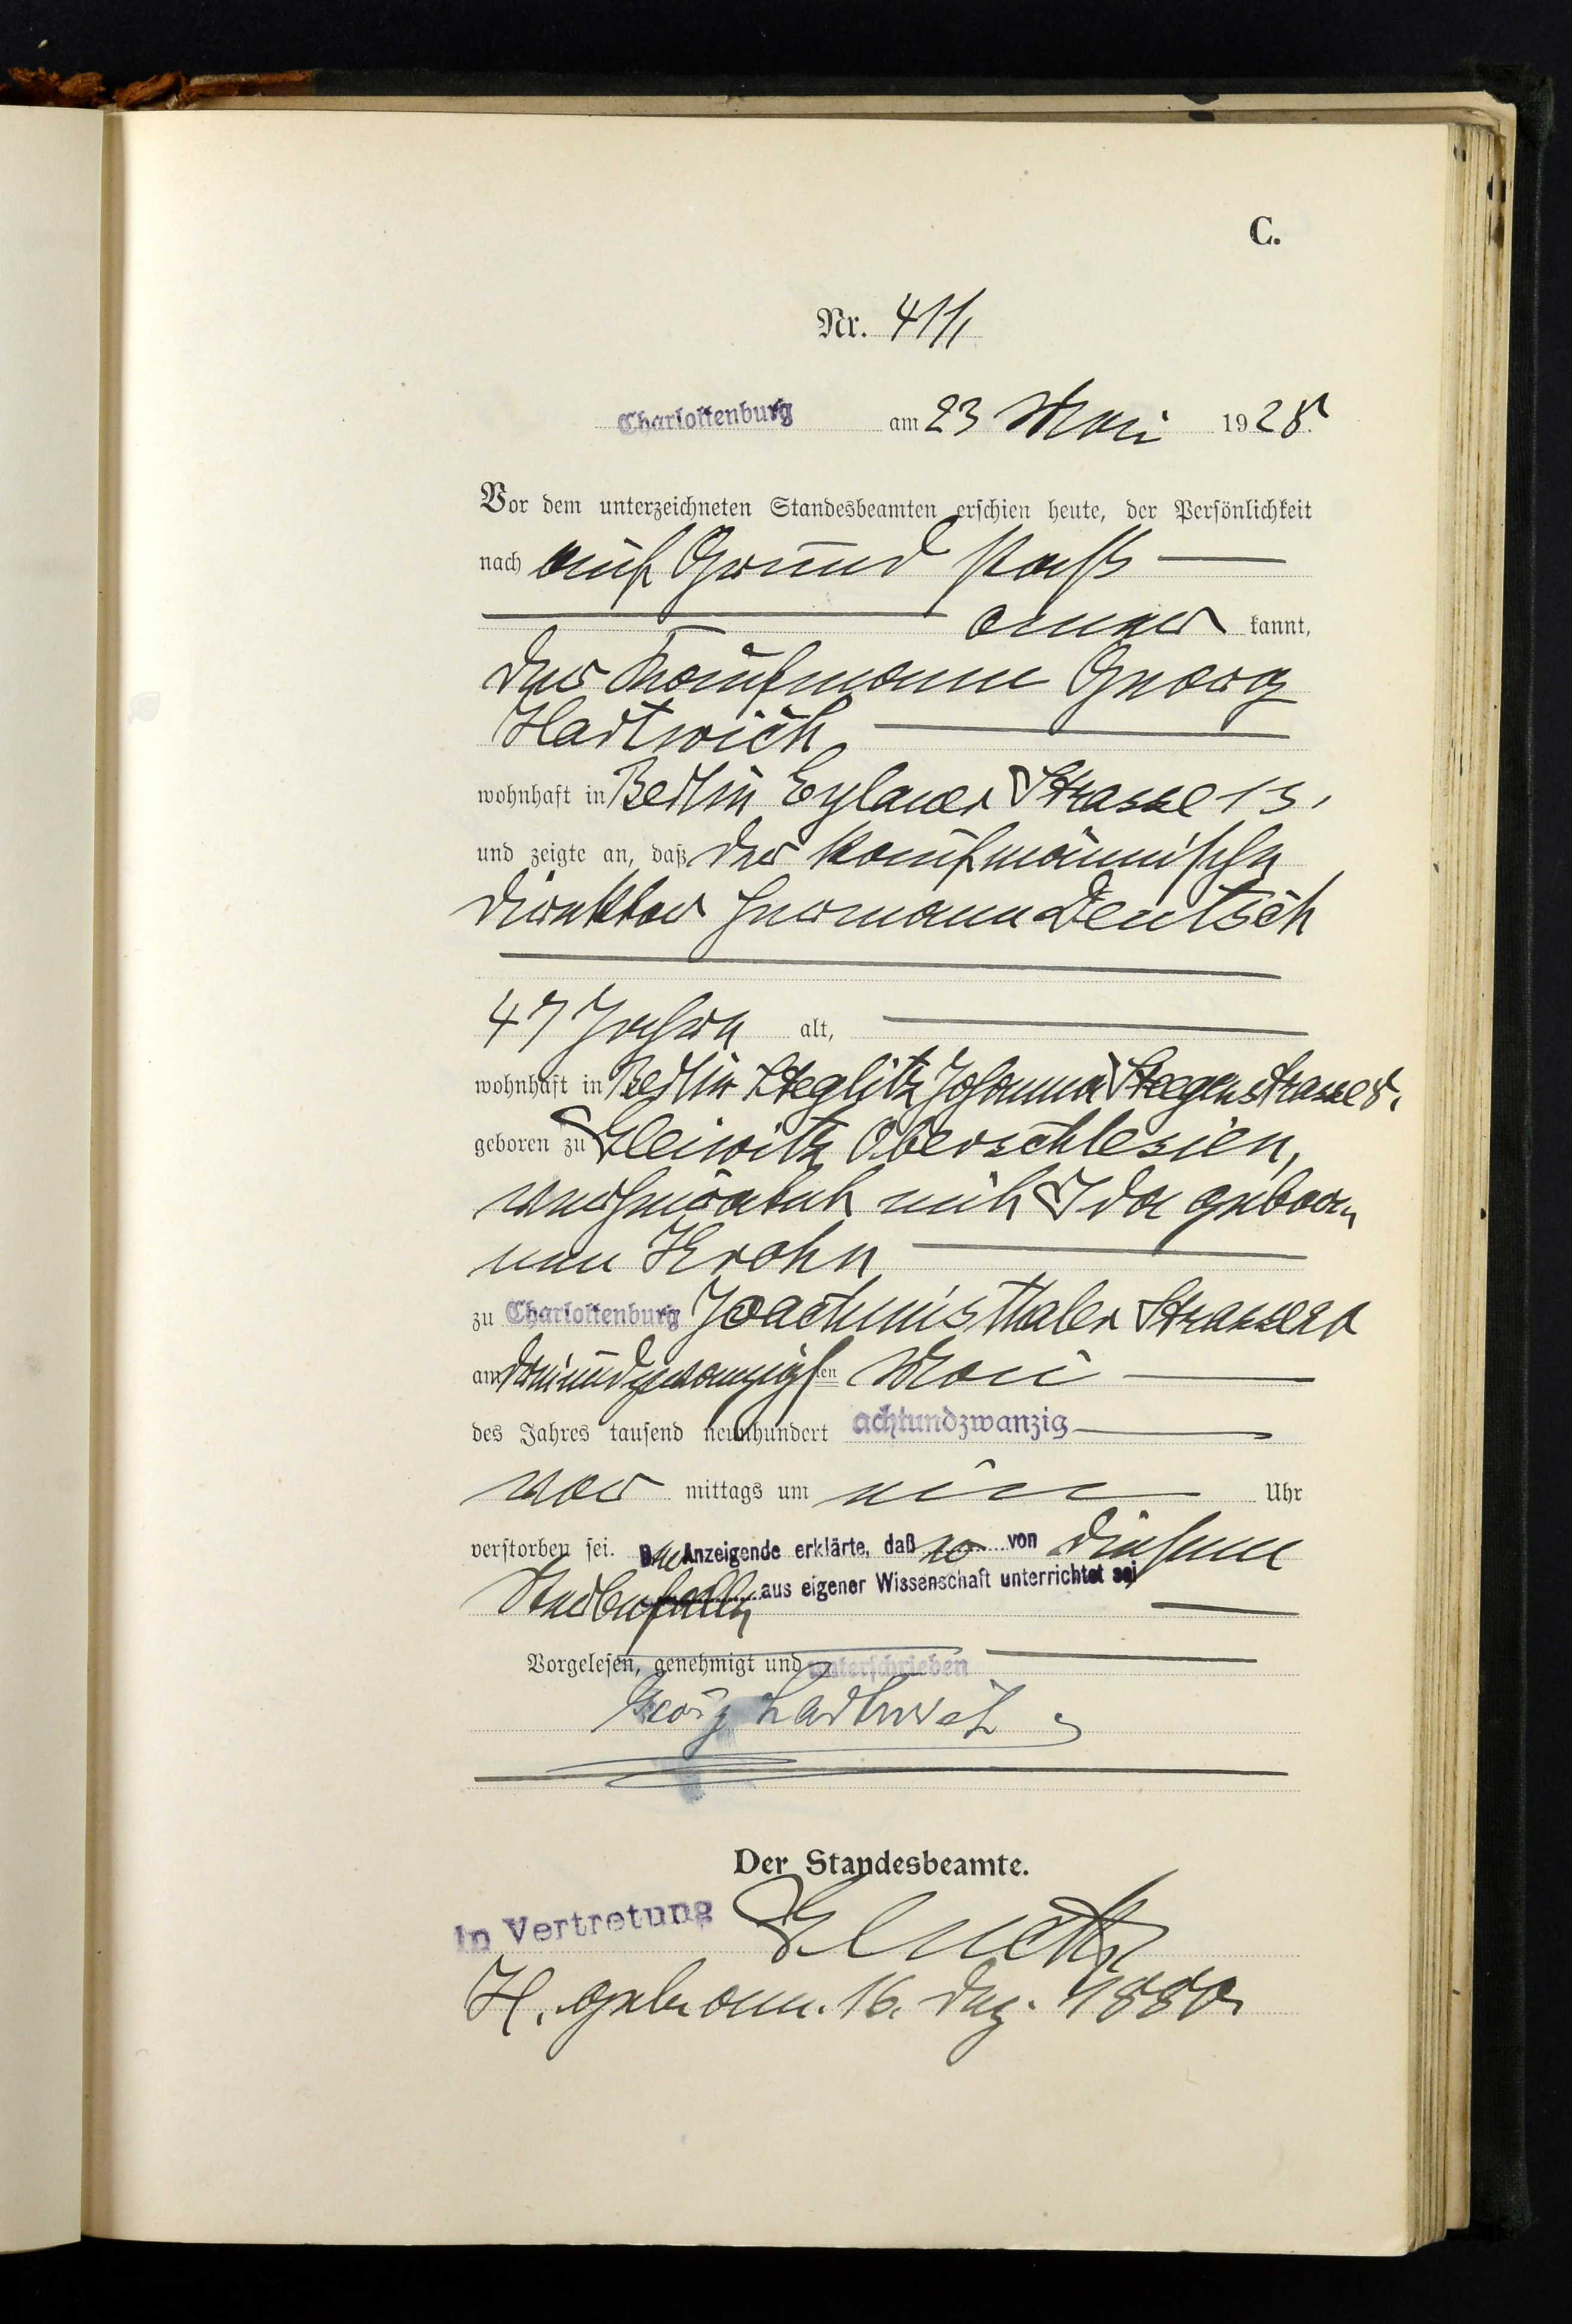 C.
Nr. 411
Charlottenburg am 23 Mai 1928.
Vor dem unterzeichneten Standesbeamten erschien heute, der Persönlichkeit
nach auf Grund Paß
aner kannt,
der Kaufmann Georg
Hartwich
wohnhaft in Berlin Eylauer Strasse 13,
und zeigte an, daß der kaufmännische
Direktor Hermann Deutsch
47 Jahre alt,
wohnhaft in Berlin Steglitz Johanna Stegenstrasse 8,
geboren zu Gleiwitz Oberschlesien,
verheiratet mit Ida gebore-
nen Krohn
zu Charlottenburg Joachimsthaler Strasse
am dreiundzwanzigsten Mai
des Jahres tausend neunhundert achtundzwanzig
vor mittags um ein Uhr
verstorben sei. Der Anzeigende erklärte, daß er von diesem
Sterbefalle aus eigener Wissenschaft unterrichtet sei
Vorgelesen, genehmigt und unterschrieben
Georg Hartwich
Der Standesbeamte.
In Vertretung
H. geb. am 16. Dez. 1880.